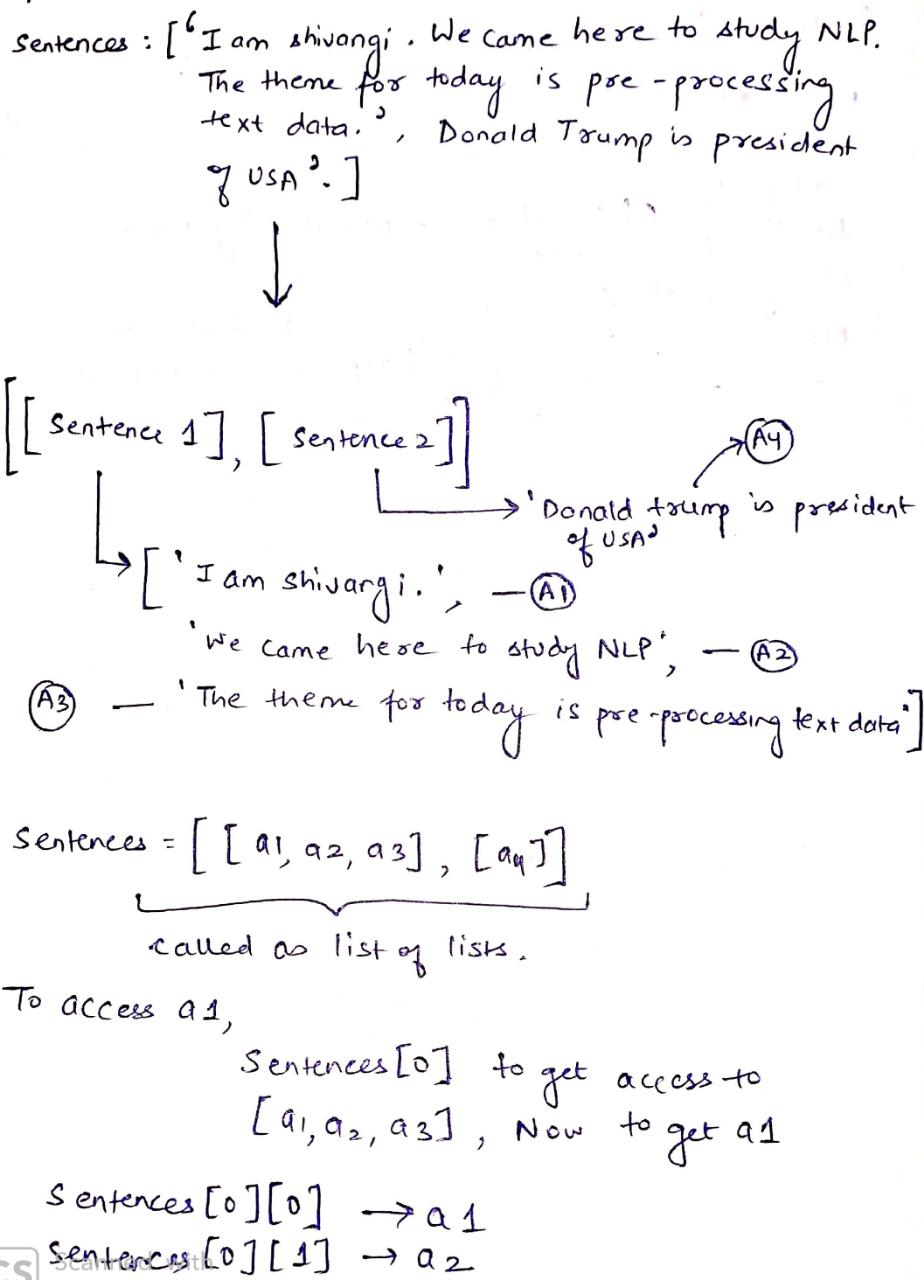 sentences : ['I am shivangi. We came here to study NLP.
The theme for today is pre-processing
text data.', Donald Trump is president
of USA'.]
[[Sentence 1], [sentence 2]]
A4
'Donald trump is president
of USA'
['I am shivangi.', — A1
'we came here to study NLP', — A2
A3 — 'The theme for today is pre-processing text data']
Sentences = [[a1, a2, a3], [a4]]
called as list of lists.
To access a1,
Sentences[0] to get access to
[a1, a2, a3], Now to get a1
Sentences[0][0] → a1
Sentences[0][1] → a2
CS Scanned with